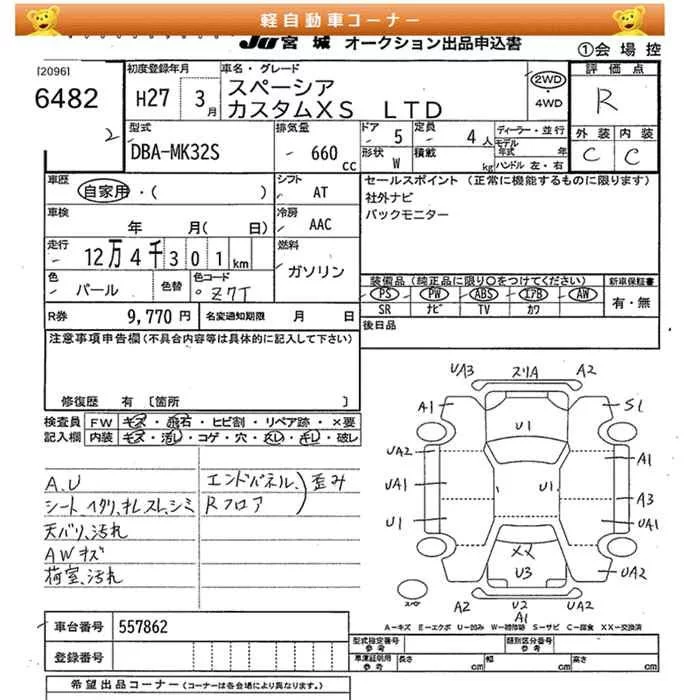 軽自動車コーナー
JU宮城 オークション出品申込書
①会場控
[2096]
6482
2
初度登録年月
H27 3月
車名・グレード
スペーシア
カスタムXS LTD
2WD
・
4WD
評価点
R
外装 内装
C C
型式
DBA-MK32S
排気量
660 cc
ドア 5
定員 4人
形状 W
積載 kg
ディーラー・並行
モデル年式 年
ハンドル 左・右
車歴
自家用・( )
シフト
AT
セールスポイント (正常に機能するものに限ります)
社外ナビ
バックモニター
車検
年 月( 日)
冷房
AAC
走行
12万4千301km
燃料
ガソリン
色
パール
色替
色コード
Z7T
装備品(純正品に限り○をつけてください)
新車保証書
PS PW ABS エアB AW
SR ナビ TV カワ
有・無
R券 9,770円
名変通知期限 月 日
後日品
注意事項申告欄(不具合内容等は具体的に記入して下さい)
修復歴 有 〔箇所 〕
検査員
記入欄
FW キズ・飛石・ヒビ割・リペア跡・×要
内装 キズ・汚し・コゲ・穴・スレ・キレ・破レ
A、U
シート、ヘタリ、キレ、スレ、シミ
天バリ、汚れ
AWキズ
荷室、汚れ
エンドパネル、
Rフロア
歪み
UA3 スリA A2
A1 S1
U1
UA2 A1
UA1 U1 A3
U1 UA1
XX
U3 UA2
A2 U2 UA2
A1
スペア
A-キズ E-エクボ U-凹み W-補修跡 S-サビ C-腐食 XX-交換済
車台番号 557862
登録番号
型式指定番号
参考
類別区分番号
参考
車庫証明用
参考
長さ cm 幅 cm 高さ cm
希望出品コーナー (コーナーは各会場により異なります。)